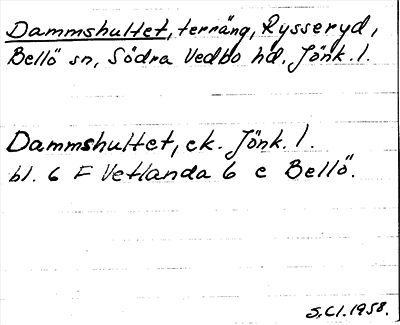 Dammshultet, terräng, Rysseryd,
Bellö sn, Södra Vedbo hd, Jönk. l.
Dammshultet, ek. Jönk. l.
bl. 6 F Vetlanda 6 c Bellö.
S.Cl. 1958.